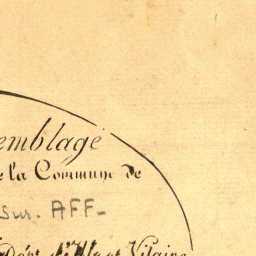 emblage
la Commune de
sur. AFF-
Dépt. d'Ille et Vilaine